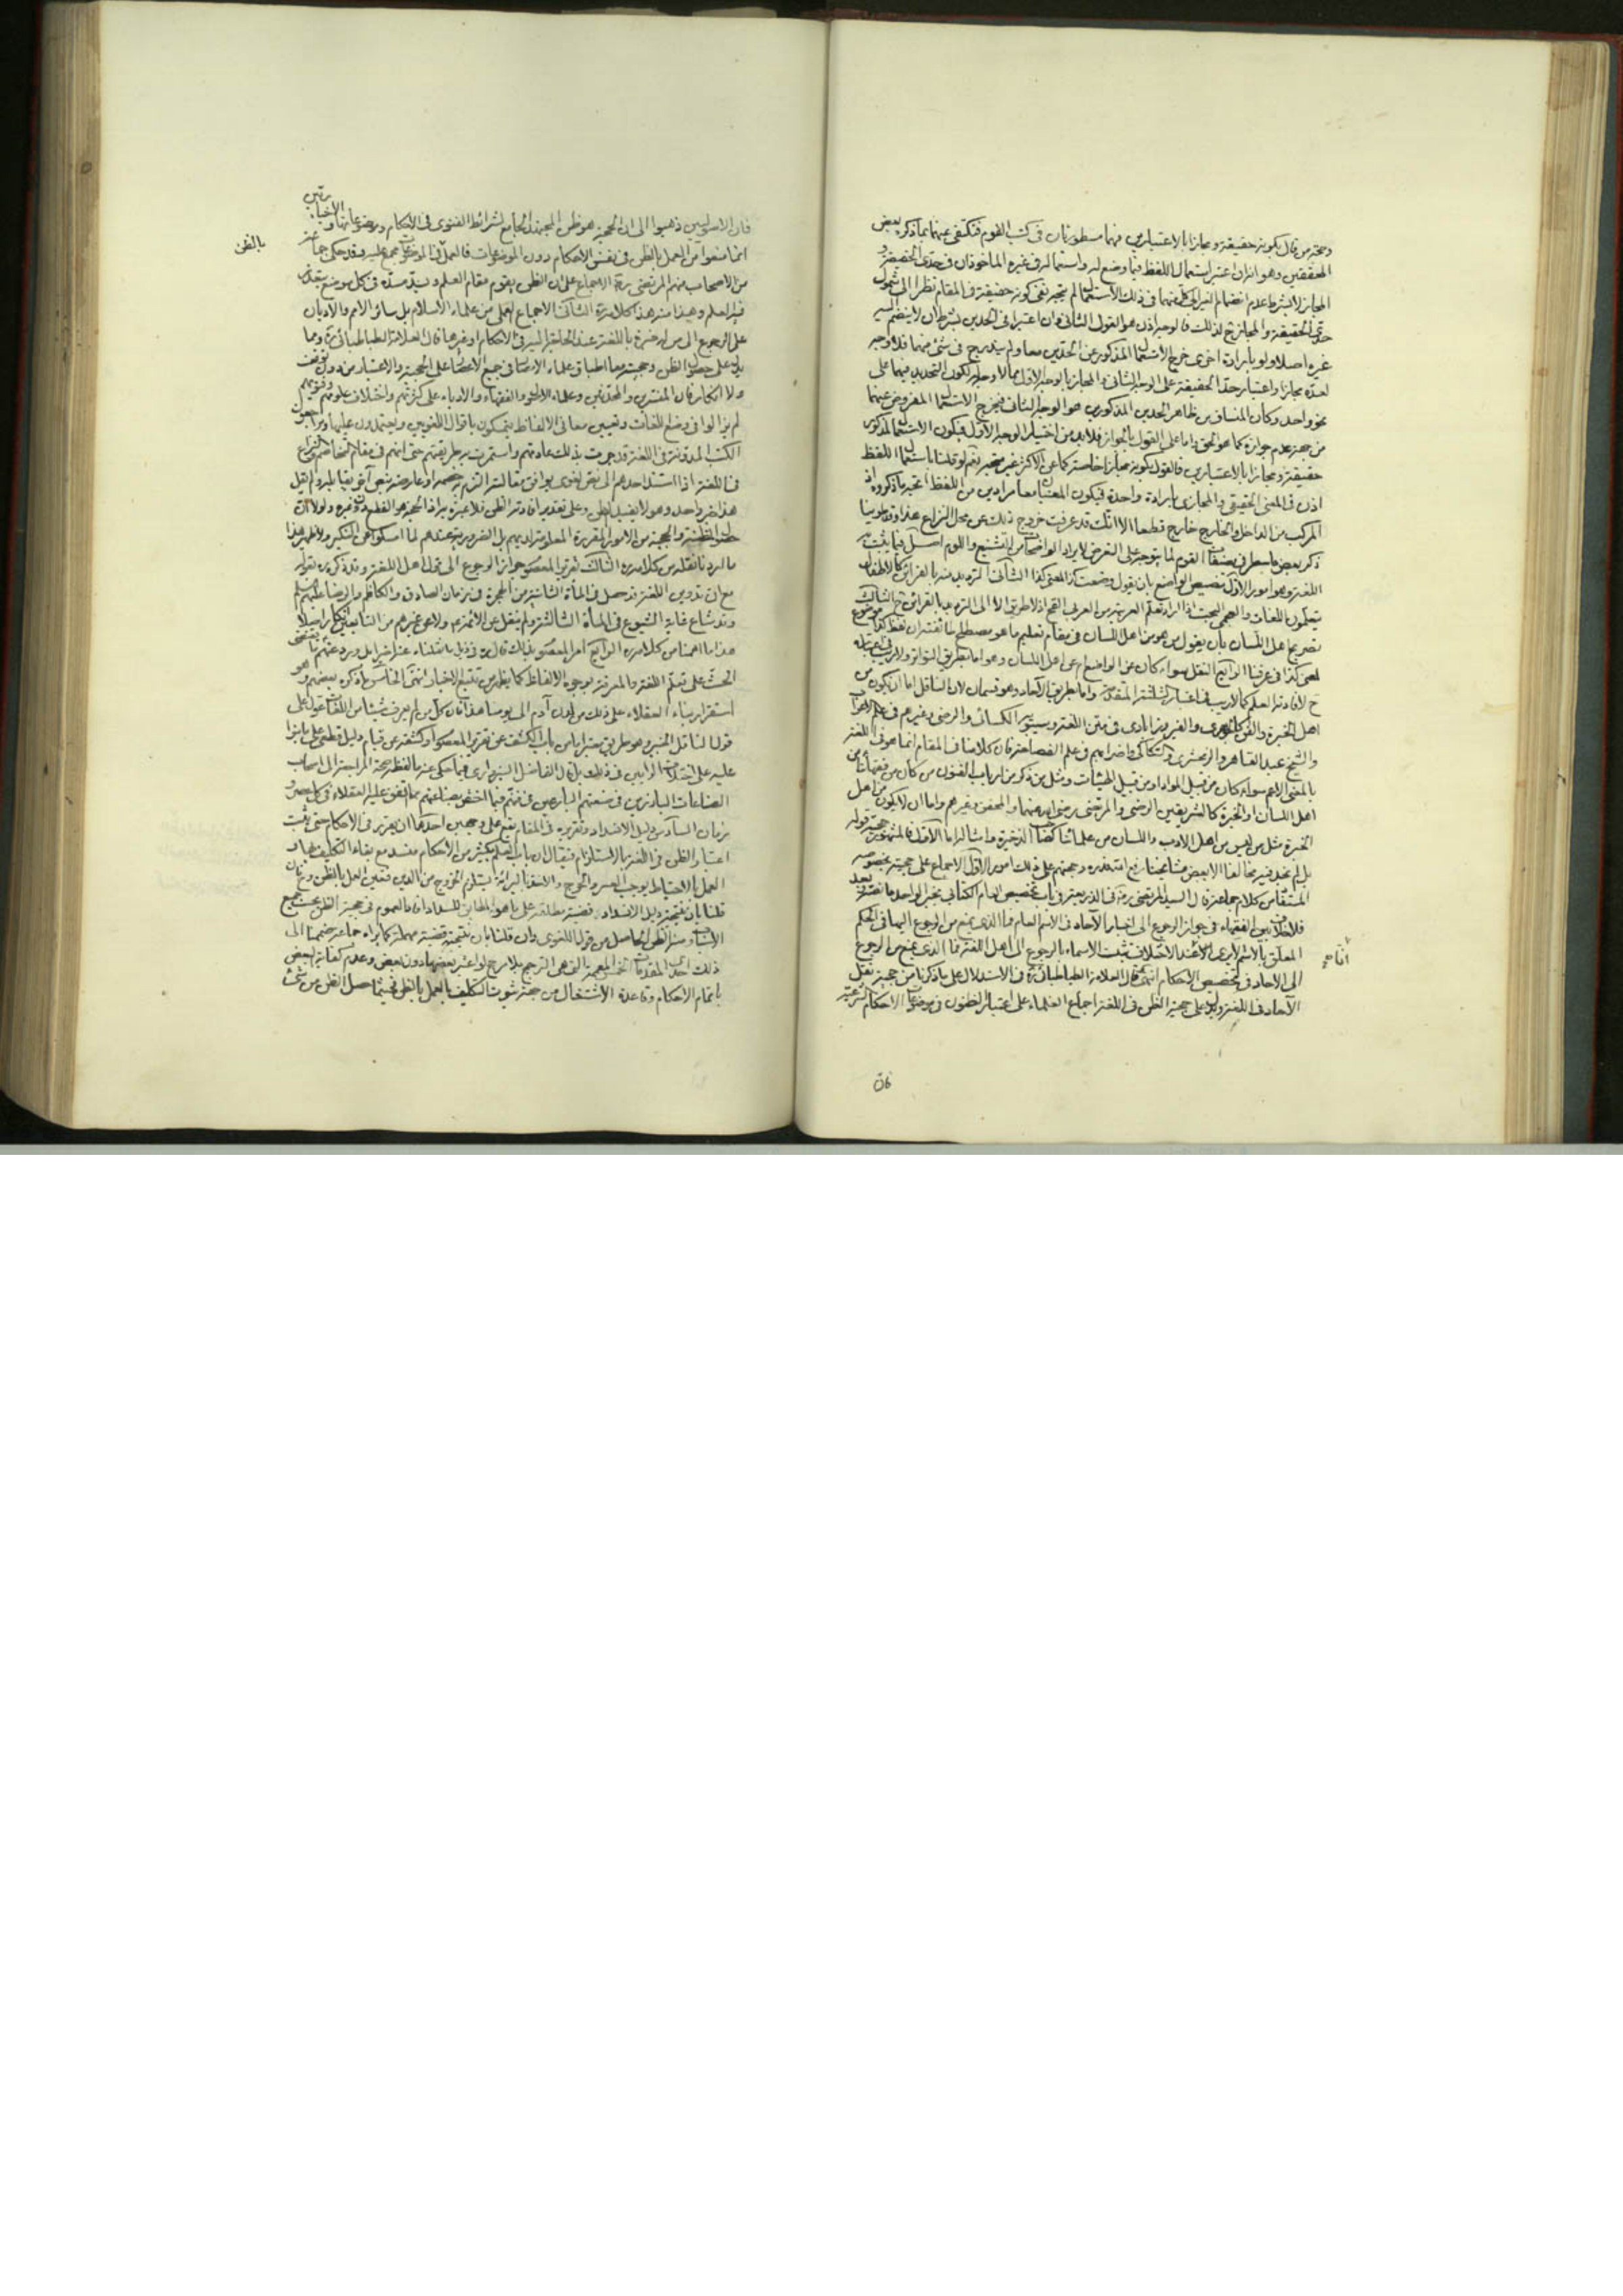 وحجة من قال بكونه حقيقة ومجازا بالاعتبارين فهما مسطورتان في كتب القوم فنكتفي عنهما بما ذكره بعض
المحققين وهو انه ان اعتبر استعمال اللفظ فيما وضع له واستعماله في غيره الماخوذان في حدى الحقيقة و
المجاز لا بشرط عدم انضمام الغير الى كل منهما في ذلك الاستعمال لم يتجه نفي كونه حقيقة في المقام نظرا الى شمول
حدى الحقيقة والمجاز ح لذلك فالوجه اذن هو القول الثاني وان اعتبرا في الحدين بشرط ان لا ينضم اليه
غيره اصلا ولو بارادة اخرى خرج الاستعمال المذكور عن الحدين معا ولم يندرج في شئ منهما فلا وجه
لعده مجازا واعتبار حد الحقيقة على الوجه الثاني والمجاز بالوجه الاول مما لا وجه له لكون التحديد فيهما على
نحو واحد وكأن المنساق من ظاهر الحدين المذكورين هو الوجه الثاني فيخرج الاستعمال المفروض عنهما
من جهة عدم جوازه كما هو الحق واما على القول بالجواز فلا بد من اختيار الوجه الاول فيكون الاستعمال المذكور
حقيقة ومجازا بالاعتبارين فالقول بكونه مجازا خاصة كما عن الاكثر غير متجه نعم لو قلنا باستعمال اللفظ
اذن في المعنى الحقيقي والمجازى بارادة واحدة فيكون المعنيان معا مرادين من اللفظ اتجه ما ذكروه اذ
المركب من الداخل والخارج خارج قطعا الا انك قد عرفت خروج ذلك عن محل النزاع هذا وقد طوينا
ذكر بعض ما سطر في مصنفات القوم لما يتوجه على التعرض لايراد الواضحات من التشنيع واللوم اصل فيما يثبت به
اللغة وهو امور الاول تنصيص الواضع بان يقول وضعت كذا لمعنى كذا الثاني الترديد بالقرائن كالاطفال
يتعلمون اللغات والعجمى البحت اذا اراد تعلم العربية من العربى القح اذ لا طريق الا الى الترديد بالقرائن ح الثالث
تصريح اهل اللسان بان يقول من هو من اهل اللسان في مقام تعليم ما هو مصطلح ما تفتد ان لفظ كذا موضوع
لمعنى كذا في عرفنا الرابع النقل سواء كان عن الواضع ام عن اهل اللسان وهو اما بطريق التواتر ولا ريب في اعتباره
ح لافادته العلم كما لا ريب في اعتبار الثلثة المتقدمة واما بطريق الآحاد وهو قسمان لان الناقل اما ان يكون من
اهل الخبرة والفن كالجوهرى والفيروزابادى في متن اللغة وسيبويه والكسائى والرضى وغيرهم في علم الاعراب
والشيخ عبد القاهر والزمخشرى والسكاكى واضرابهم في علم الفصاحة فان كلامنا في المقام انما هو في اللغة
بالمعنى الاعم سواء كان من قبيل المواد او من قبيل الهيئات ومثل من ذكر من ارباب الفنون من كان من فقهائنا من
اهل اللسان او الخبرة كالشريفين الرضى والمرتضى رضى الله عنهما والمحقق وغيرهم واما ان لا يكون من اهل
الخبرة مثل من ليس من اهل الادب واللسان من علمائنا كصاحب الذخيرة وامثاله اما الاول فالمشهور حجية قوله
بل لم نجد فيه مخالفا الا بعض مشايخنا رفع الله قدره وحجتهم على ذلك امور الاول الاجماع على حجيته بخصوصه
المستفاد من كلام جماعة قال السيد المرتضى ره في الذريعة في باب تخصيص العام الكتابى بخبر الواحد ما لفظه بعد
فلا خلاف بين الفقهاء في جواز الرجوع الى اخبار الآحاد في الاسم العام فما الذى يمنع من الرجوع اليها في الحكم
المعلق بالاسم الا ترى انا عند الاختلاف نثبت الاسماء بالرجوع الى اهل اللغة فما الذى يمنع من الرجوع
الى الآحاد في تخصيص الاحكام انتهى وقال العلامة الطباطبائى ره في الاستدلال على ما ذكرنا من حجية نقل
الآحاد في اللغة ويدل على حجية الظن في اللغة اجماع العلماء على اعتبار الظنون في موضوعات الاحكام الشرعية
فان
فان الاصوليين ذهبوا الى ان الحجة هو ظن المجتهد الجامع لشرائط الفتوى في الاحكام وموضوعاتها والاخباريين
انما منعوا من العمل بالظن في نفس الاحكام دون الموضوعات فالعمل في الموضوعات مجمع عليه وقد حكى جماعة
بالظن
من الاصحاب منهم المرتضى ره الاجماع على ان الظن يقوم مقام العلم ويسد مسده في كل موضع يتعذر
فيه العلم وهيذا منه هذا كلامه ره الثاني الاجماع العملى من علماء الاسلام بل سائر الامم والاديان
على الرجوع الى من له خبرة باللغة عند الحاجة اليه في الاحكام او غيرها قال العلامة الطباطبائى ره ومما
يدل على حصول الظن وحجيته معا اطباق علماء الامصار في جميع الاعصار على الحجية والاعتبار من دون توقف
ولا انكار فان المفسرين والمحدثين وعلماء الاصول والفقهاء والادباء على كثرتهم واختلاف علومهم وفنونهم
لم يزالوا في وضع اللغات وتعيين معاني الالفاظ يتمسكون باقوال اللغويين ويعتمدون عليها ويراجعون
الكتب المدونة في اللغة قد جرت بذلك عادتهم واستمرت به طريقتهم حتى انهم في مقام التخاصم والنزاع
في اللغة اذا استند احدهم الى نص لغوى يوافق مقالته التزم به خصمه او عارضه بنص آخر يقابله ولم يقل
هذا خبر واحد وهو لا يفيد الظن وعلى تقدير افادته الظن فلا عبرة به اذ الحجة هو القطع دون غيره ولولا ان
حصول الظن والحجية من الامور المقررة المعلومة لديهم بل الضرورية عندهم لما امسكوا عن النكير ولاظهروا هذا
ما اردنا نقله من كلامه ره الثالث تقرير المعصوم جواز الرجوع الى قول اهل اللغة وقد ذكره ره بقوله
مع ان تدوين اللغة قد حصل في المأة الثانية من الهجرة في زمان الصادق والكاظم والرضا عليهم السلم
وقد شاع غاية الشيوع في المأة الثالثة ولم ينقل عن الائمة ع ولا عن غيرهم من التابعين انكار
هذا ما اهمنا من كلامه ره الرابع امر المعصوم بذلك
الحث على تعلم اللغة والمعرفة بوجوه الالفاظ كما يظهر من تتبع الاخبار انتهى الخامس ما ذكره بعضهم وهو
استقرار بناء العقلاء على ذلك من لدن آدم الى يومنا هذا فان كل من لم يعرف شيئا من اللغات عول على
قول الناقل الخبير وهو طريق معتبر اما من باب الكشف عن تقرير المعصوم او كشفه عن قيام دليل قطعى على ما بنوا
عليه على اختلاف الرأيين في ذلك بل قال الفاضل السبزوارى فيما حكى عنه ما لفظه صحة المراجعة الى اصحاب
الصناعات البارزين في صنعتهم البارعين في فنهم فيما اختص بصناعتهم مما اتفق عليه العقلاء في كل عصر و
زمان السادس دليل الانسداد وتقريره في المقام يقع على وجهين احدهما ان يقرر في الاحكام حتى يثبت
اعتبار الظن في اللغة بالاستلزام فيقال ان باب العلم بكثير من الاحكام منسد مع بقاء التكليف بها و
العمل بالاحتياط يوجب العسر والحرج والاخذ بالبرائة يستلزم الخروج من الدين فتعين العمل بالظن وح فان
قلنا بان نتيجة دليل الانسداد قضية مطلقة على ما هو المطابق للسداد افاد العموم في حجية الظن بحسب جميع
الاسباب ومنها الظن الحاصل من قول اللغوى وان قلنا بان نتيجته قضية مهملة كما يراه جماعة ضممنا الى
ذلك احدى المقدمات المعممة التي هي الترجيح بلا مرجح لو اعتبر بعضها دون بعض وعدم كفاية البعض
باتمام الاحكام وقاعدة الاشتغال من جهة ثبوت التكليف بالعمل بالظن فحيثما حصل الظن من شئ